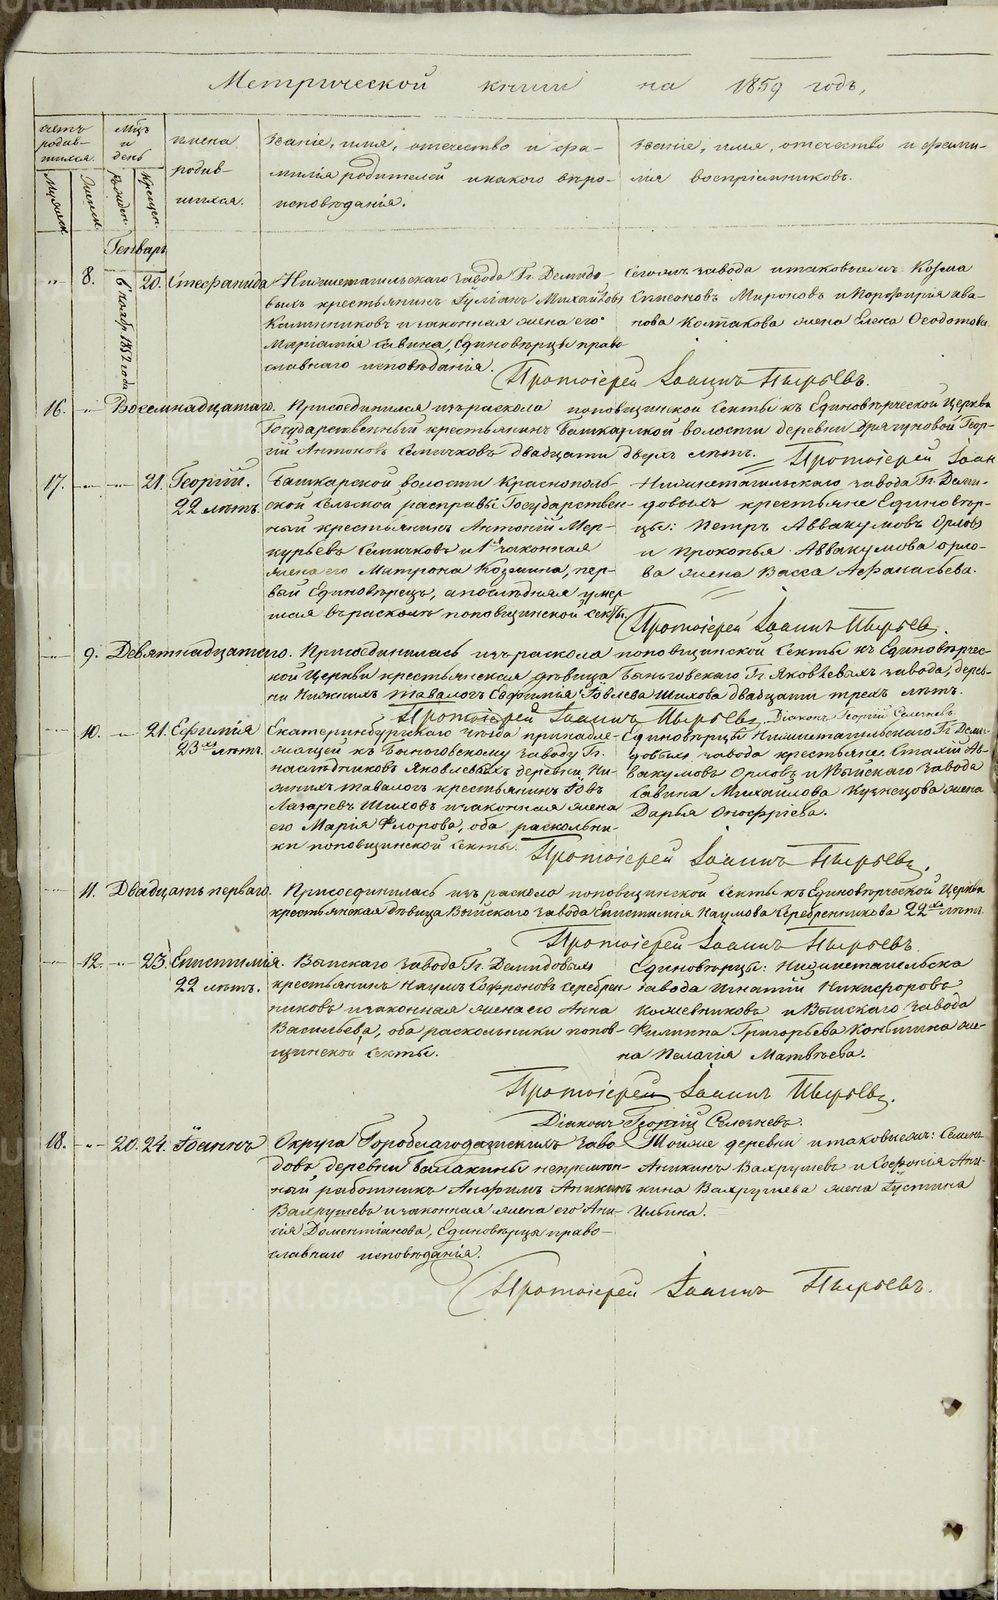 METRIKI.GASO-URAL.RU
Метрической книги на 1859 годъ,
счетъ родив-шихся.
Мужеска
Женска
М҃цъ и день
рожден.
Крещен.
имена родив-шихся.
Званіе, имя, отечество и фа-
милія родителей и какого вѣро-
исповѣданія.
Званіе, имя, отечество и фами-
лія воспріемниковъ.
Генварь
„ 8. 6 ноября 1852 года 20. Стефанида
Нижнетагильскаго завода Гг. Демидо-
выхъ крестьянинъ Гулианъ Михайловъ
Калинниковъ и законная жена его
Маріамія Савина, Единовѣрцы право
славнаго исповѣданія.
Сегожъ завода и таковыежъ: Козма
Симеоновъ Мироновъ и Порфирія ива-
нова Колтакова жена Елена Ѳеодотова.
Протоіерей Іоаннъ Пырьевъ.
16. „ Восемнадцатаго. Присоединился изъ раскола поповщинской Секты къ Единовѣрческой Церкви
Государственный крестьянинъ Башкарской волости деревни Дрягуновой Геор-
гій Антоновъ Семячковъ двадцати двухъ лѣтъ. Протоіерей Іоан
17. „ „ 21. Георгій.
22 лѣтъ.
Башкарской волости Краснополь-
ской Сельской расправы Государствен-
ный крестьянинъ Антоній Мер-
курьевъ Семячковъ и 1я законная
жена его Матрона Козмина, пер-
вый Единовѣрецъ, а послѣдняя умер-
шая въ расколѣ поповщинской секты.
Нижнетагильскаго завода Гг. Деми-
довыхъ крестьяне Единовѣр-
цы: Петръ Аввакумовъ Орловъ
и Прокопья Аввакумова орло-
ва жена Васса Аѳанасьева.
Протоіерей Іоаннъ Пырьевъ.
„ 9. Девятнадцатаго. Присоединилась изъ раскола поповщинской Секты къ Единовѣрчес-
кой Церкви крестьянская дѣвица Быньговскаго Гг. Яковлевыхъ завода, дерев-
ни Нижнихъ Тавологъ Евфимія Іовлева Шихова двадцати трехъ лѣтъ.
Протоіерей Іоаннъ Пырьевъ, Діаконъ Георгій Селечневъ
10. „ 21. Ефимія
23хъ лѣтъ.
Екатеринбургскаго уѣзда принадле-
жащей къ Быньговскому заводу Гг.
наслѣдниковъ Яковлевыхъ деревни Ни-
жнихъ тавологъ крестьянинъ Іовъ
Лазаревъ Шиховъ и законная жена
его Марія Флорова, оба раскольни-
ки поповщинской секты.
Единовѣрцы Нижнетагильскаго Гг. Деми-
довыхъ завода крестьяне: Стахій Ав-
вакумовъ Орловъ и Выйскаго завода
Савина Михайлова Кузнецова жена
Дарья Онофріева.
Протоіерей Іоаннъ Пырьевъ.
11. Двадцать перваго. Присоединилась изъ раскола поповщинской Секты къ Единовѣрческой Церкви
крестьянская дѣвица Выйскаго завода Епистимія Наумова Серебренникова 22хъ лѣтъ.
Протоіерей Іоаннъ Пырьевъ.
„ 12. „ 23. Епистимія.
22 лѣтъ.
Выйскаго завода Гг. Демидовыхъ
крестьянинъ Наумъ Софроновъ Серебрен
никовъ и законная жена его Анна
Васильева, оба раскольники попов-
щинской секты.
Единовѣрцы: Нижнетагильска
завода Игнатій Никифоровъ
Кожевниковъ и Выйскаго завода
Филиппа Григорьева Коныгина же-
на Пелагія Матвѣева.
Протоіерей Іоаннъ Пырьевъ.
Діаконъ Георгій Селечневъ.
18. „ 20. 24. Іоаннъ
Округа Гороблагодатскихъ заво
довъ деревни Балакины непремѣн-
ный работникъ Анфимъ Аникинъ
Вахрушевъ и законная жена его Ани-
сія Доментіанова, Единовѣрцы право-
славнаго исповѣданія.
Тойже деревни и таковыежъ: Семенъ
Аникинъ Вахрушевъ и Софонія Ани-
кина Вахрушева жена Іустина
Ильина.
Протоіерей Іоаннъ Пырьевъ.